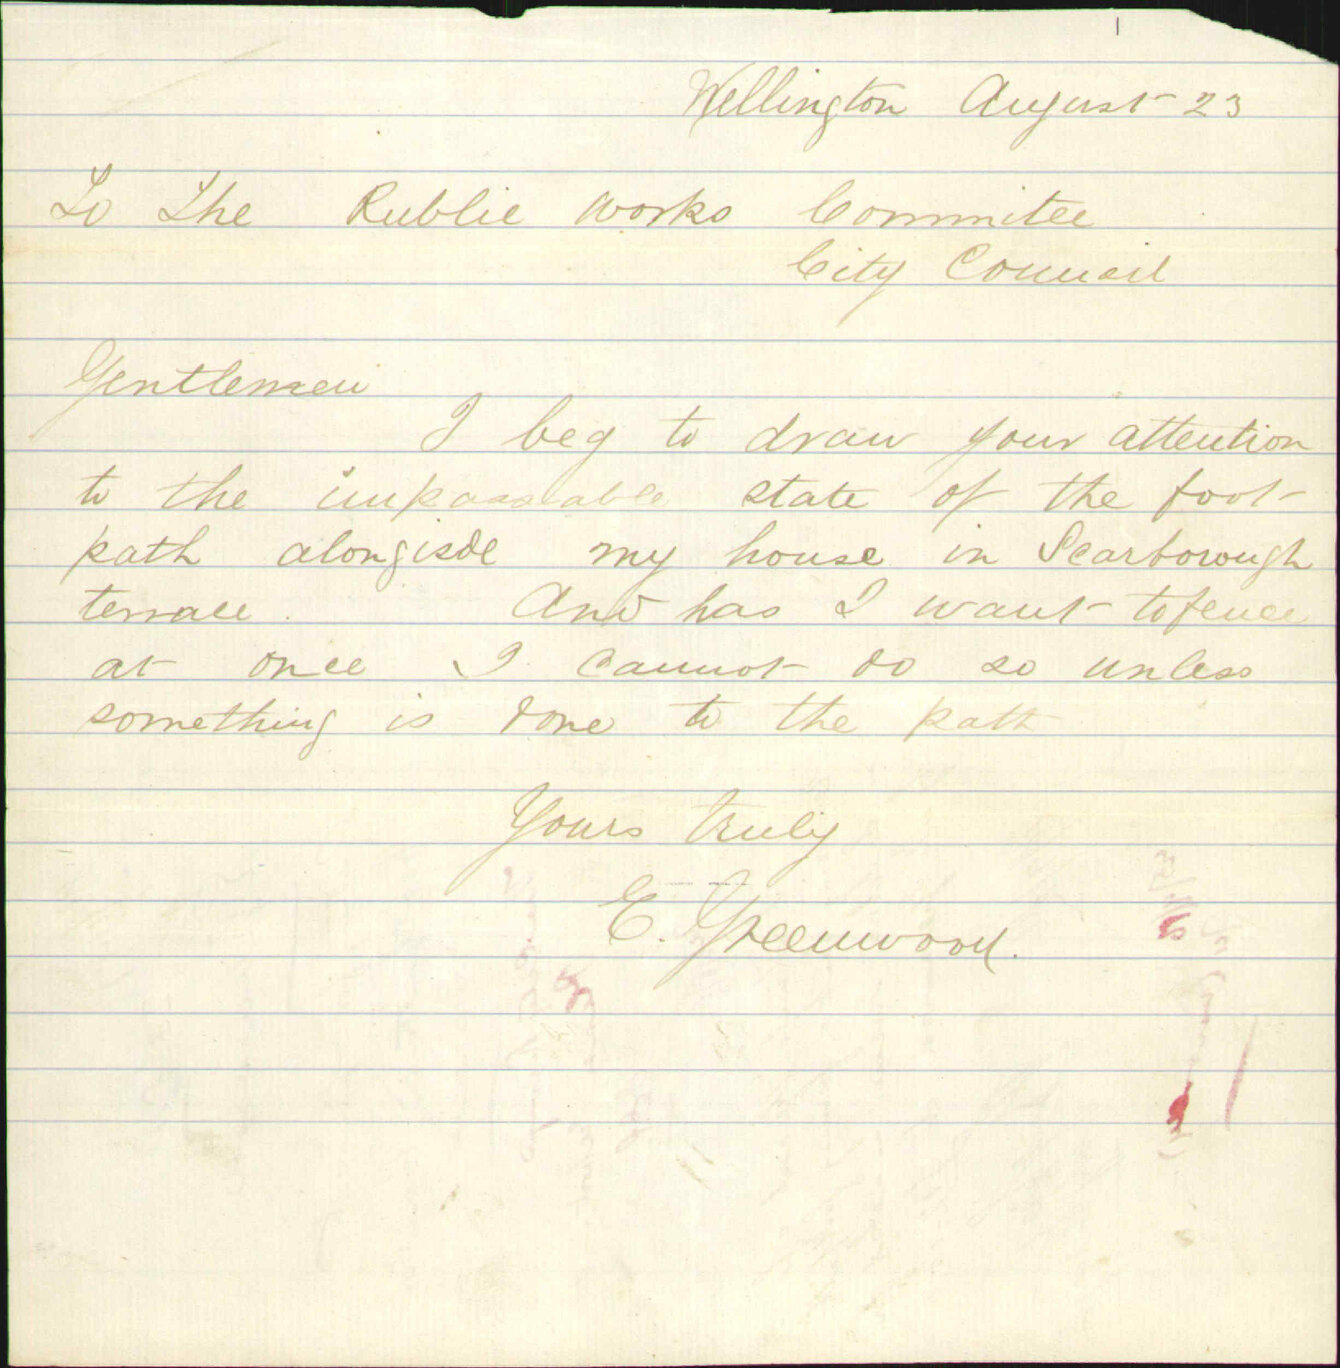 Wellington August 23
To The Public Works Commitee
City Council
Gentlemen
I beg to draw your attention
to the impassable state of the foot-
path alongisde my house in Scarborough
terrace. And has I want to fence
at once I cannot do so unless
something is done to the path
Yours truly
E. Greenwood.